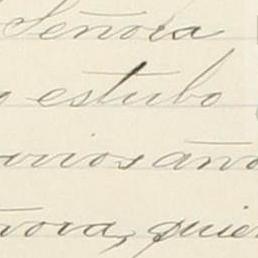 Señora
estubo
varios año
ñora, quie